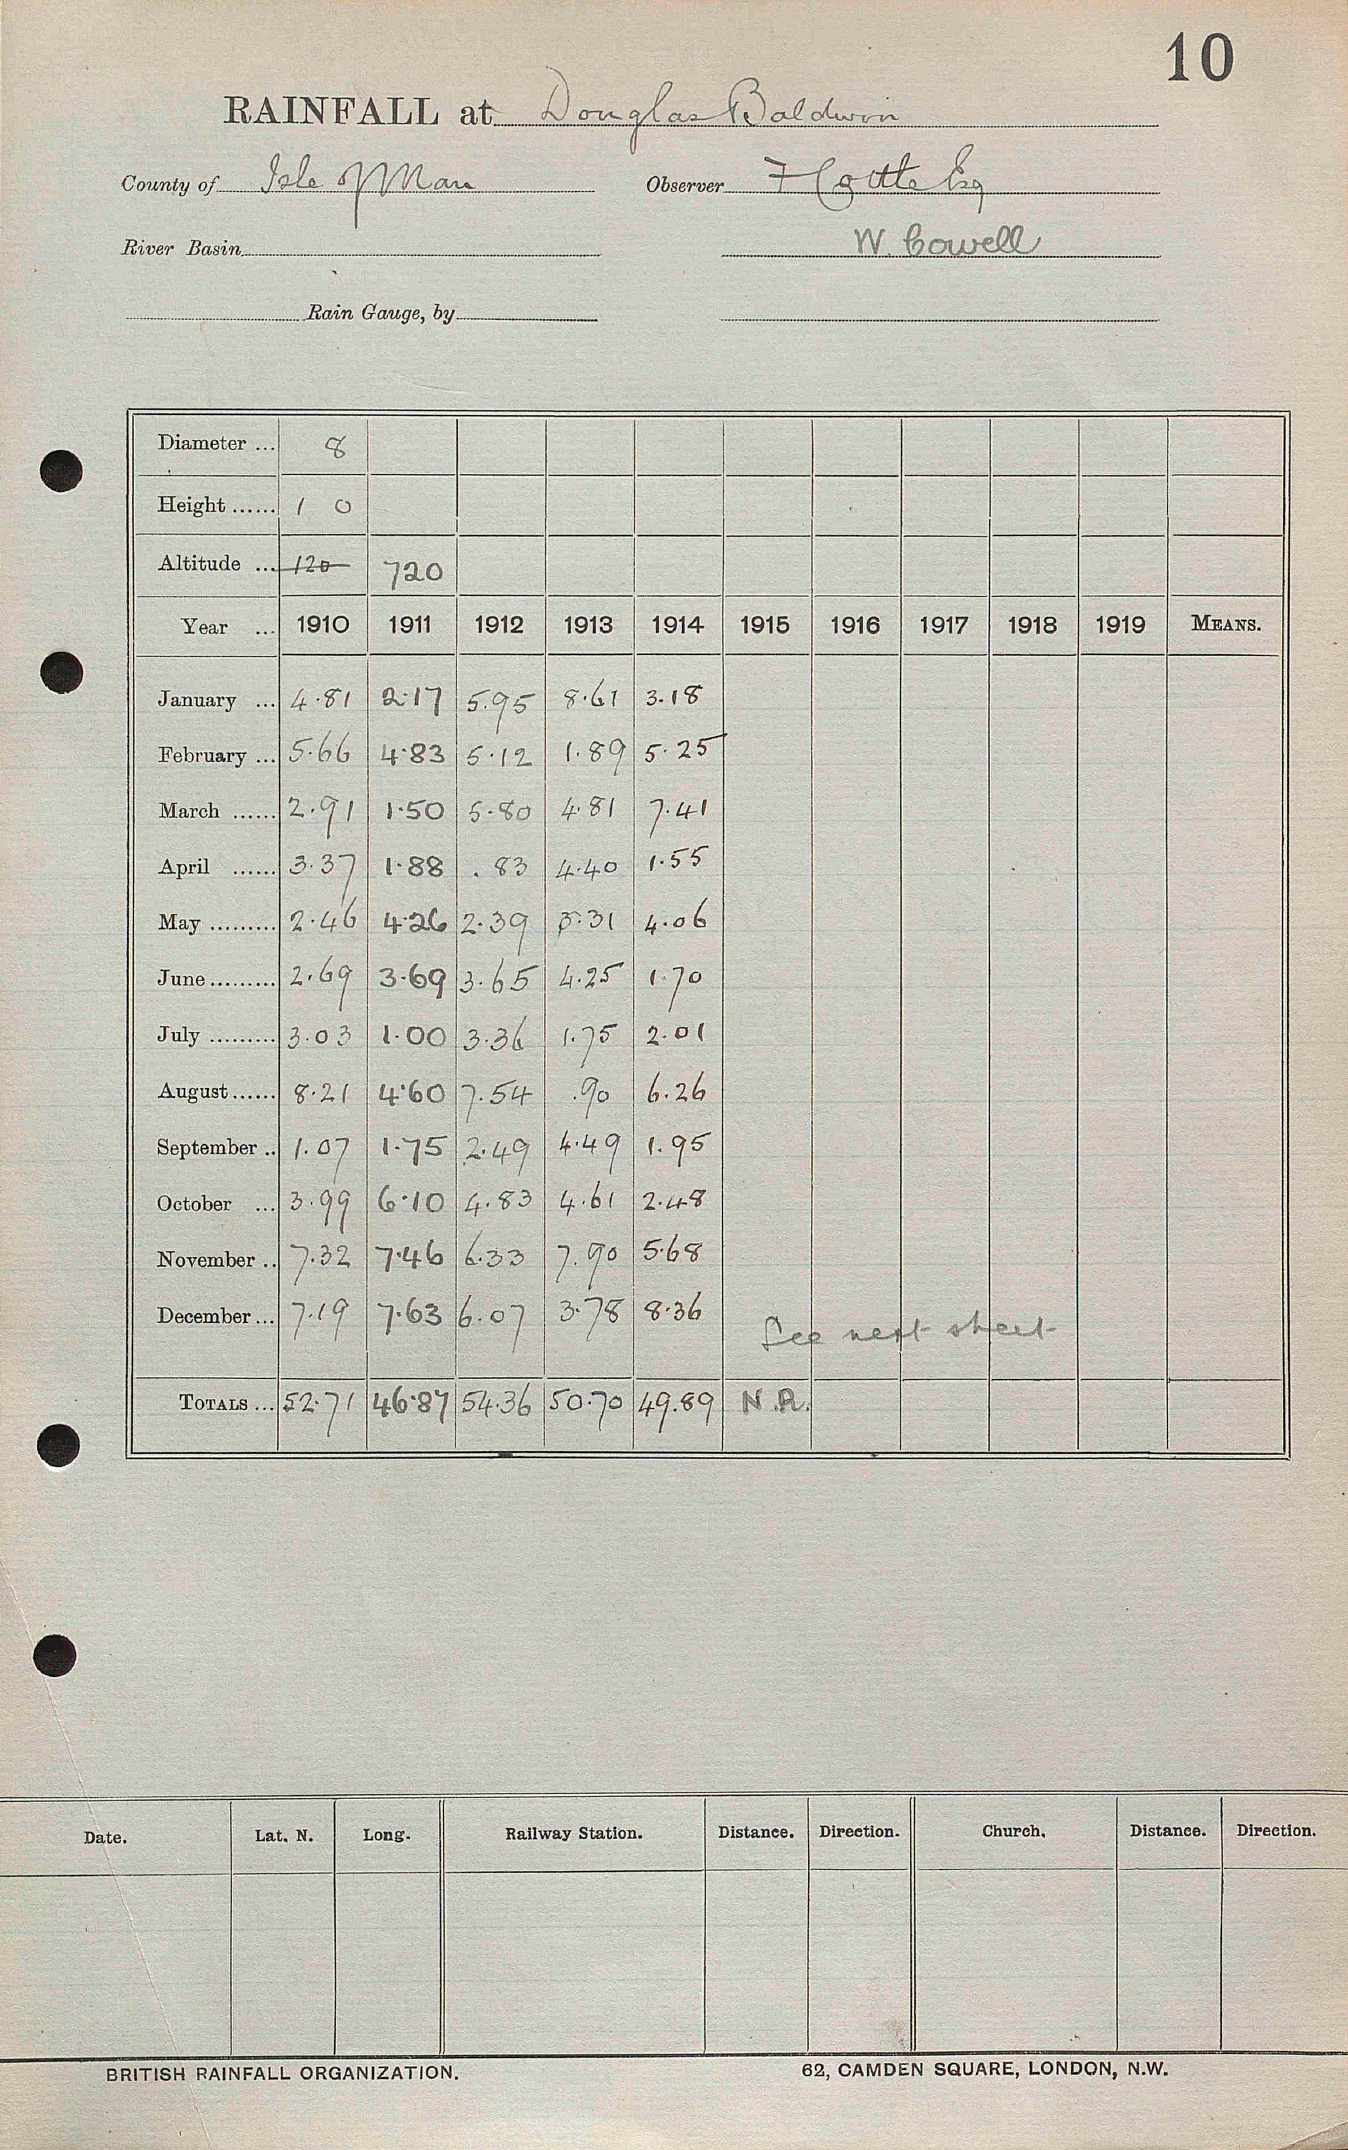 10
RAINFALL at Douglas Baldwin
County of Isle of Man Observer F Cottle Esq
River Basin W. Cowell
Rain Gauge, by
Diameter ... 8
Height ...... 1 0
Altitude ... 120 720
Year ... 1910 1911 1912 1913 1914 1915 1916 1917 1918 1919 MEANS.
January ... 4.81 2.17 5.95 8.61 3.18
February ... 5.66 4.83 5.12 1.89 5.25
March ...... 2.91 1.50 5.80 4.81 7.41
April ...... 3.37 1.88 .83 4.40 1.55
May ......... 2.46 4.26 2.39 3.31 4.06
June ......... 2.69 3.69 3.65 4.25 1.70
July ......... 3.03 1.00 3.36 1.75 2.01
August ...... 8.21 4.60 7.54 .90 6.26
September .. 1.07 1.75 2.49 4.49 1.95
October ... 3.99 6.10 4.83 4.61 2.48
November .. 7.32 7.46 6.33 7.90 5.68
December ... 7.19 7.63 6.07 3.78 8.36
See next sheet
TOTALS ... 52.71 46.87 54.36 50.70 49.89 N.R.
Date. Lat. N. Long. Railway Station. Distance. Direction. Church. Distance. Direction.
BRITISH RAINFALL ORGANIZATION. 62, CAMDEN SQUARE, LONDON, N.W.